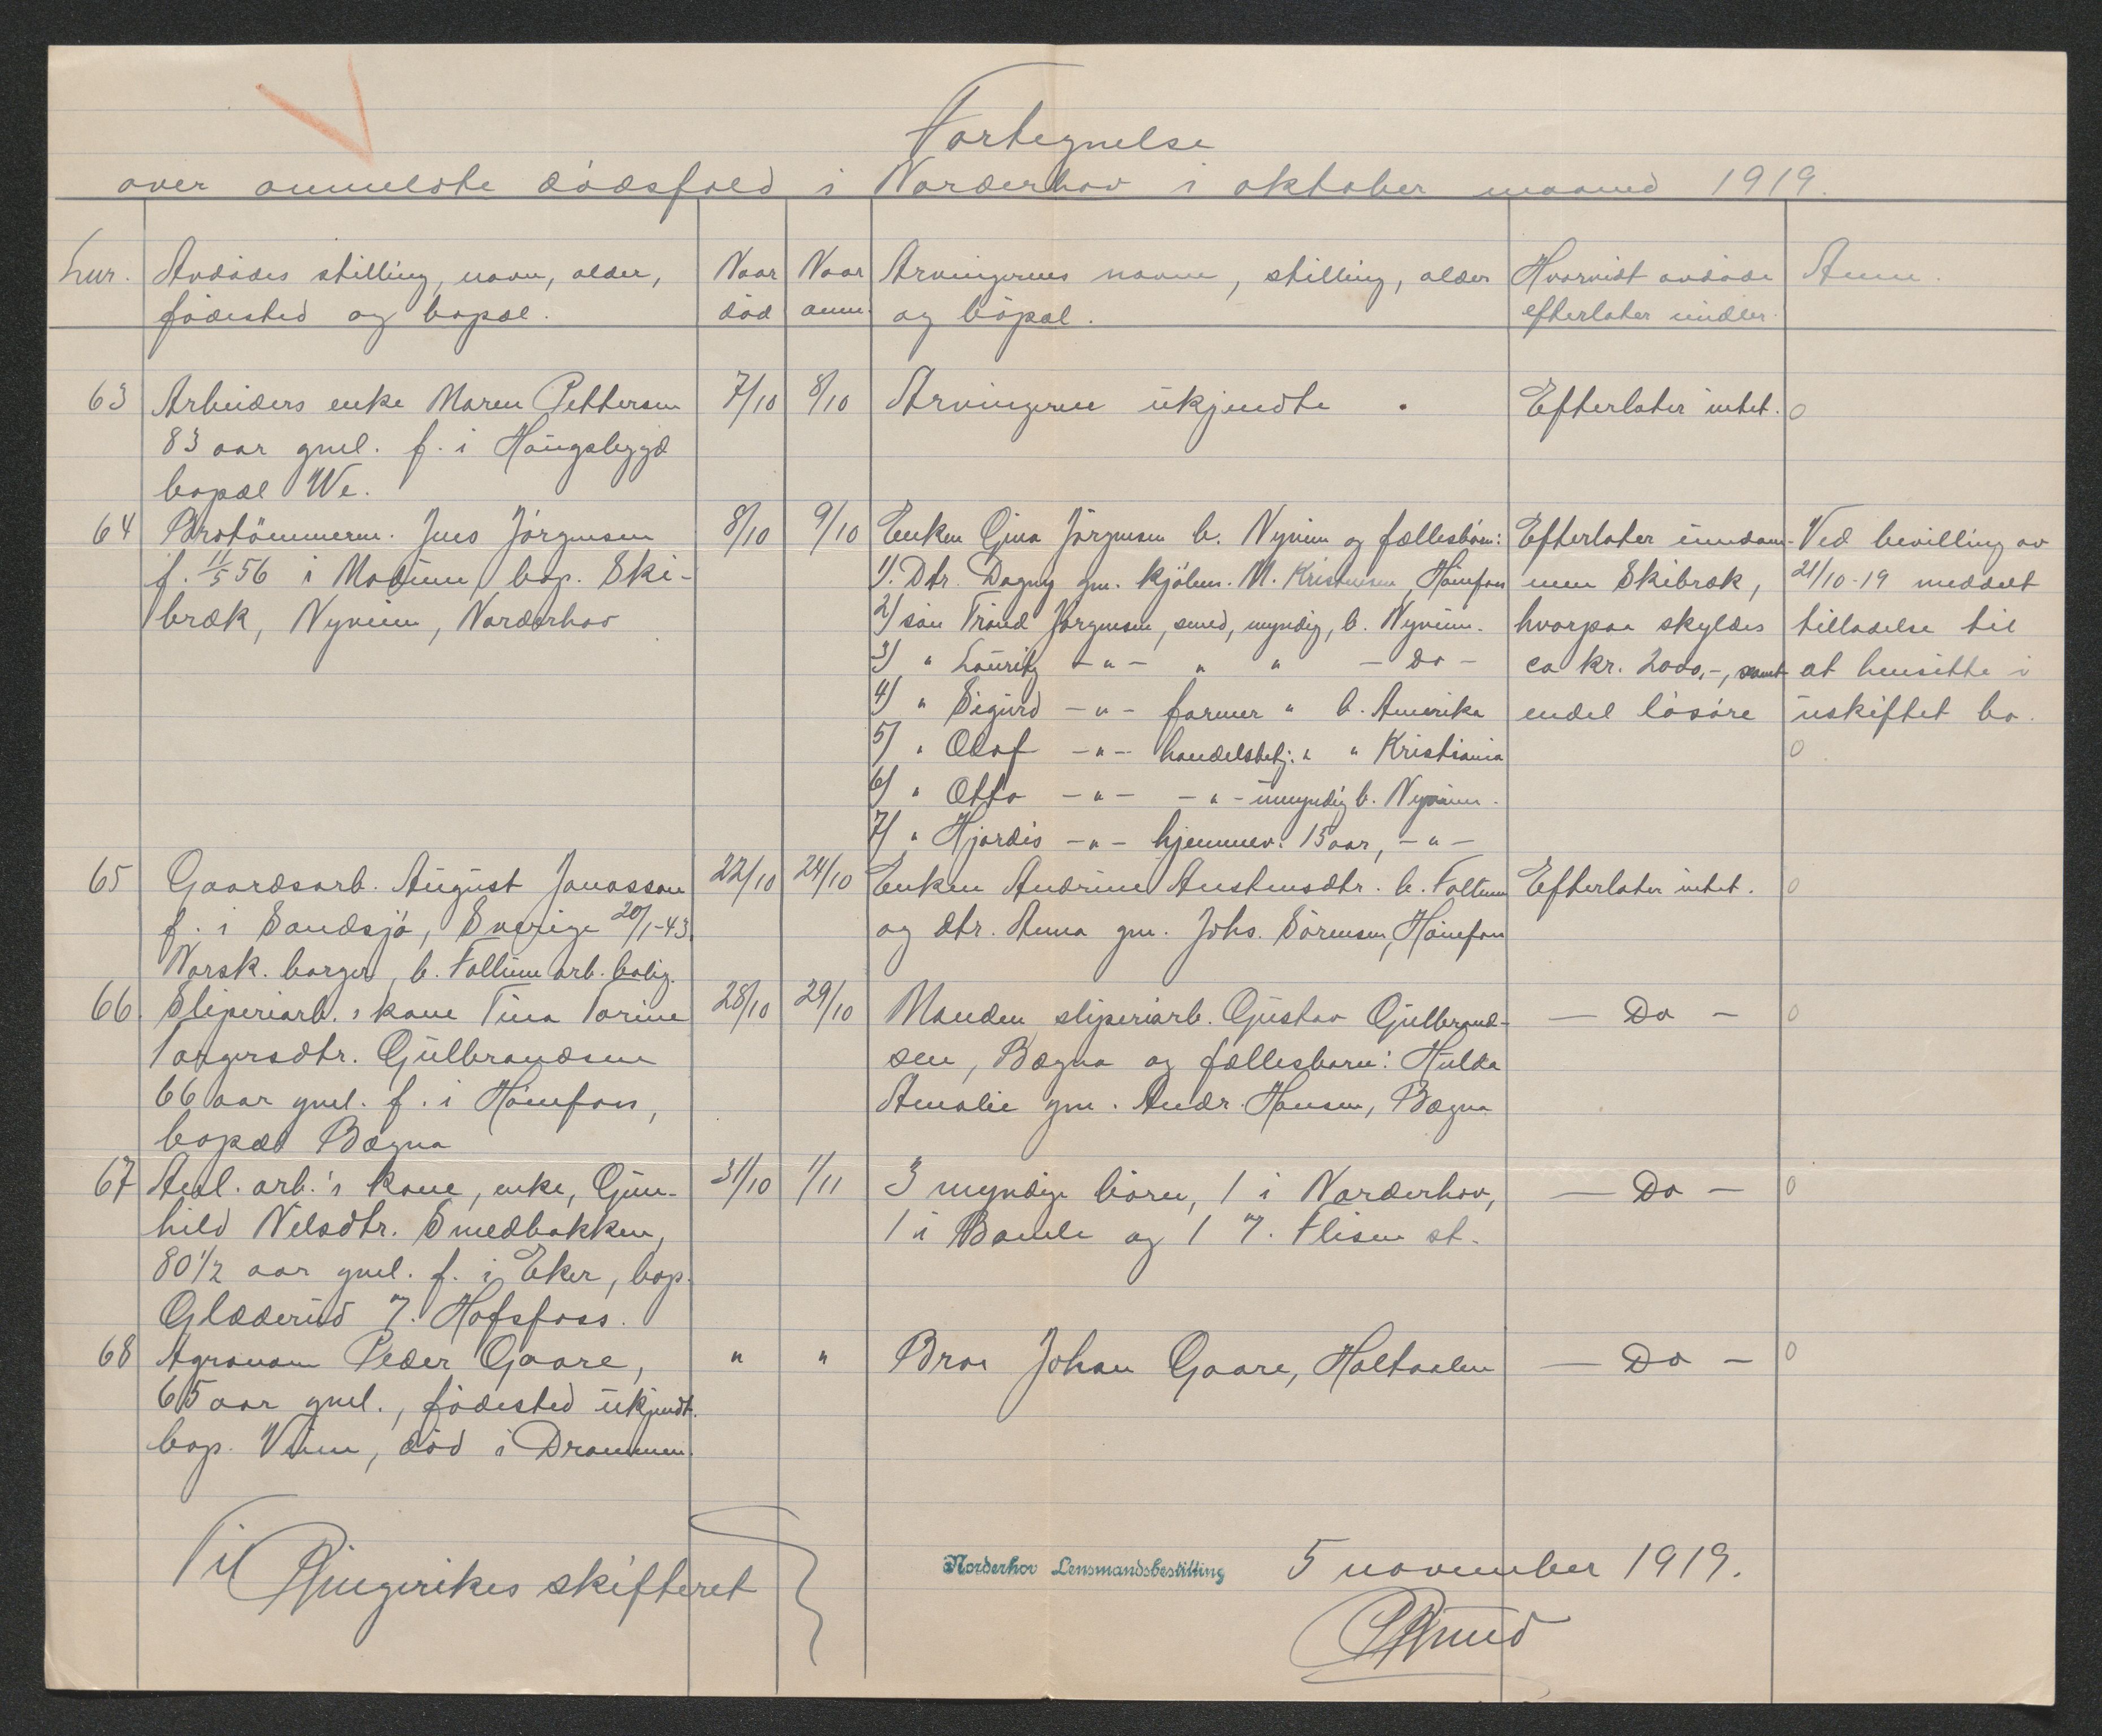 Fortegnelse
over anmeldte dödsfald i Norderhov i oktober maaned 1919.
Lnr. Avdödes stilling, navn, alder, födested og bopæl. Naar död Naar anm. Arvingernes navne, stilling, alder og bopæl. Hvorvidt avdöde efterlater midler. Anm.
63 Arbeiders enke Maren Pettersen 7/10 8/10 Arvingerne ukjendte. Efterlater intet. 0
83 aar gml. f. i Haugsbygd
bopæl We.
64 Brotömmerm. Jens Jörgensen 8/10 9/10 Enken Gina Jörgensen b. Nymoen og fællesbörn: Efterlater eiendom- Ved bevilling av
f. 11/5 56 i Modum, bop. Ski- 1). Dtr. Dagny gm. kjölm. M. Kristensen, Hönefoss men Skibræk, 21/10-19 meddelt
bræk, Nymoen, Norderhov 2) sön Trond Jörgensen, smed, myndig, b. Nymoen. hvorpaa skyldes tilladelse til
3) " Lauritz - " - " " - Do - ca kr. 2000,-, samt at hensitte i
4) " Sigurd - " - farmer " b. Amerika endel lösöre uskiftet bo.
5) " Olaf - " - handelsbetj. " " Kristiania 0
6) " Otto - " - - " - umyndig b. Nymoen.
7) " Hjordis - " - hjemmev. 15 aar, - " -
65 Gaardsarb. August Jonasson 22/10 24/10 Enken Andrine Austensdtr. b. Follum Efterlater intet. 0
f. i Sandsjö, Sverige 20/1-43. og dtr. Anna gm. Johs. Sörensen, Hönefoss
Norsk. borger, b. Follum arb. bolig.
66. Sliperiarb.s kone Tina Torine 28/10 29/10 Manden sliperiarb. Gustav Gulbrand- - Do - 0
Torgersdtr. Gulbrandsen sen, Bægna og fællesbarn: Hulda
66 aar gml. f. i Hönefoss, Amalie gm. Andr. Hansen, Bægna
bopæl Bægna
67 Anl. arb.'s kone, enke, Gun- 31/10 1/11 3 myndige börn, 1 i Norderhov, - Do - 0
hild Nelsdtr. Smedbakken, 1 i Bamle og 1 pr. Flisen st.
80 1/2 aar gml. f. i Eker, bop.
Glæderud pr. Hofsfoss.
68 Agronom Peder Gaare, " " Bror Johan Gaare, Holtaalen - Do - 0
65 aar gml., födested ukjendt.
bop. Veien, död i Drammen.
Til Ringerikes skifteret
Norderhov Lensmandsbestilling 5 november 1919.